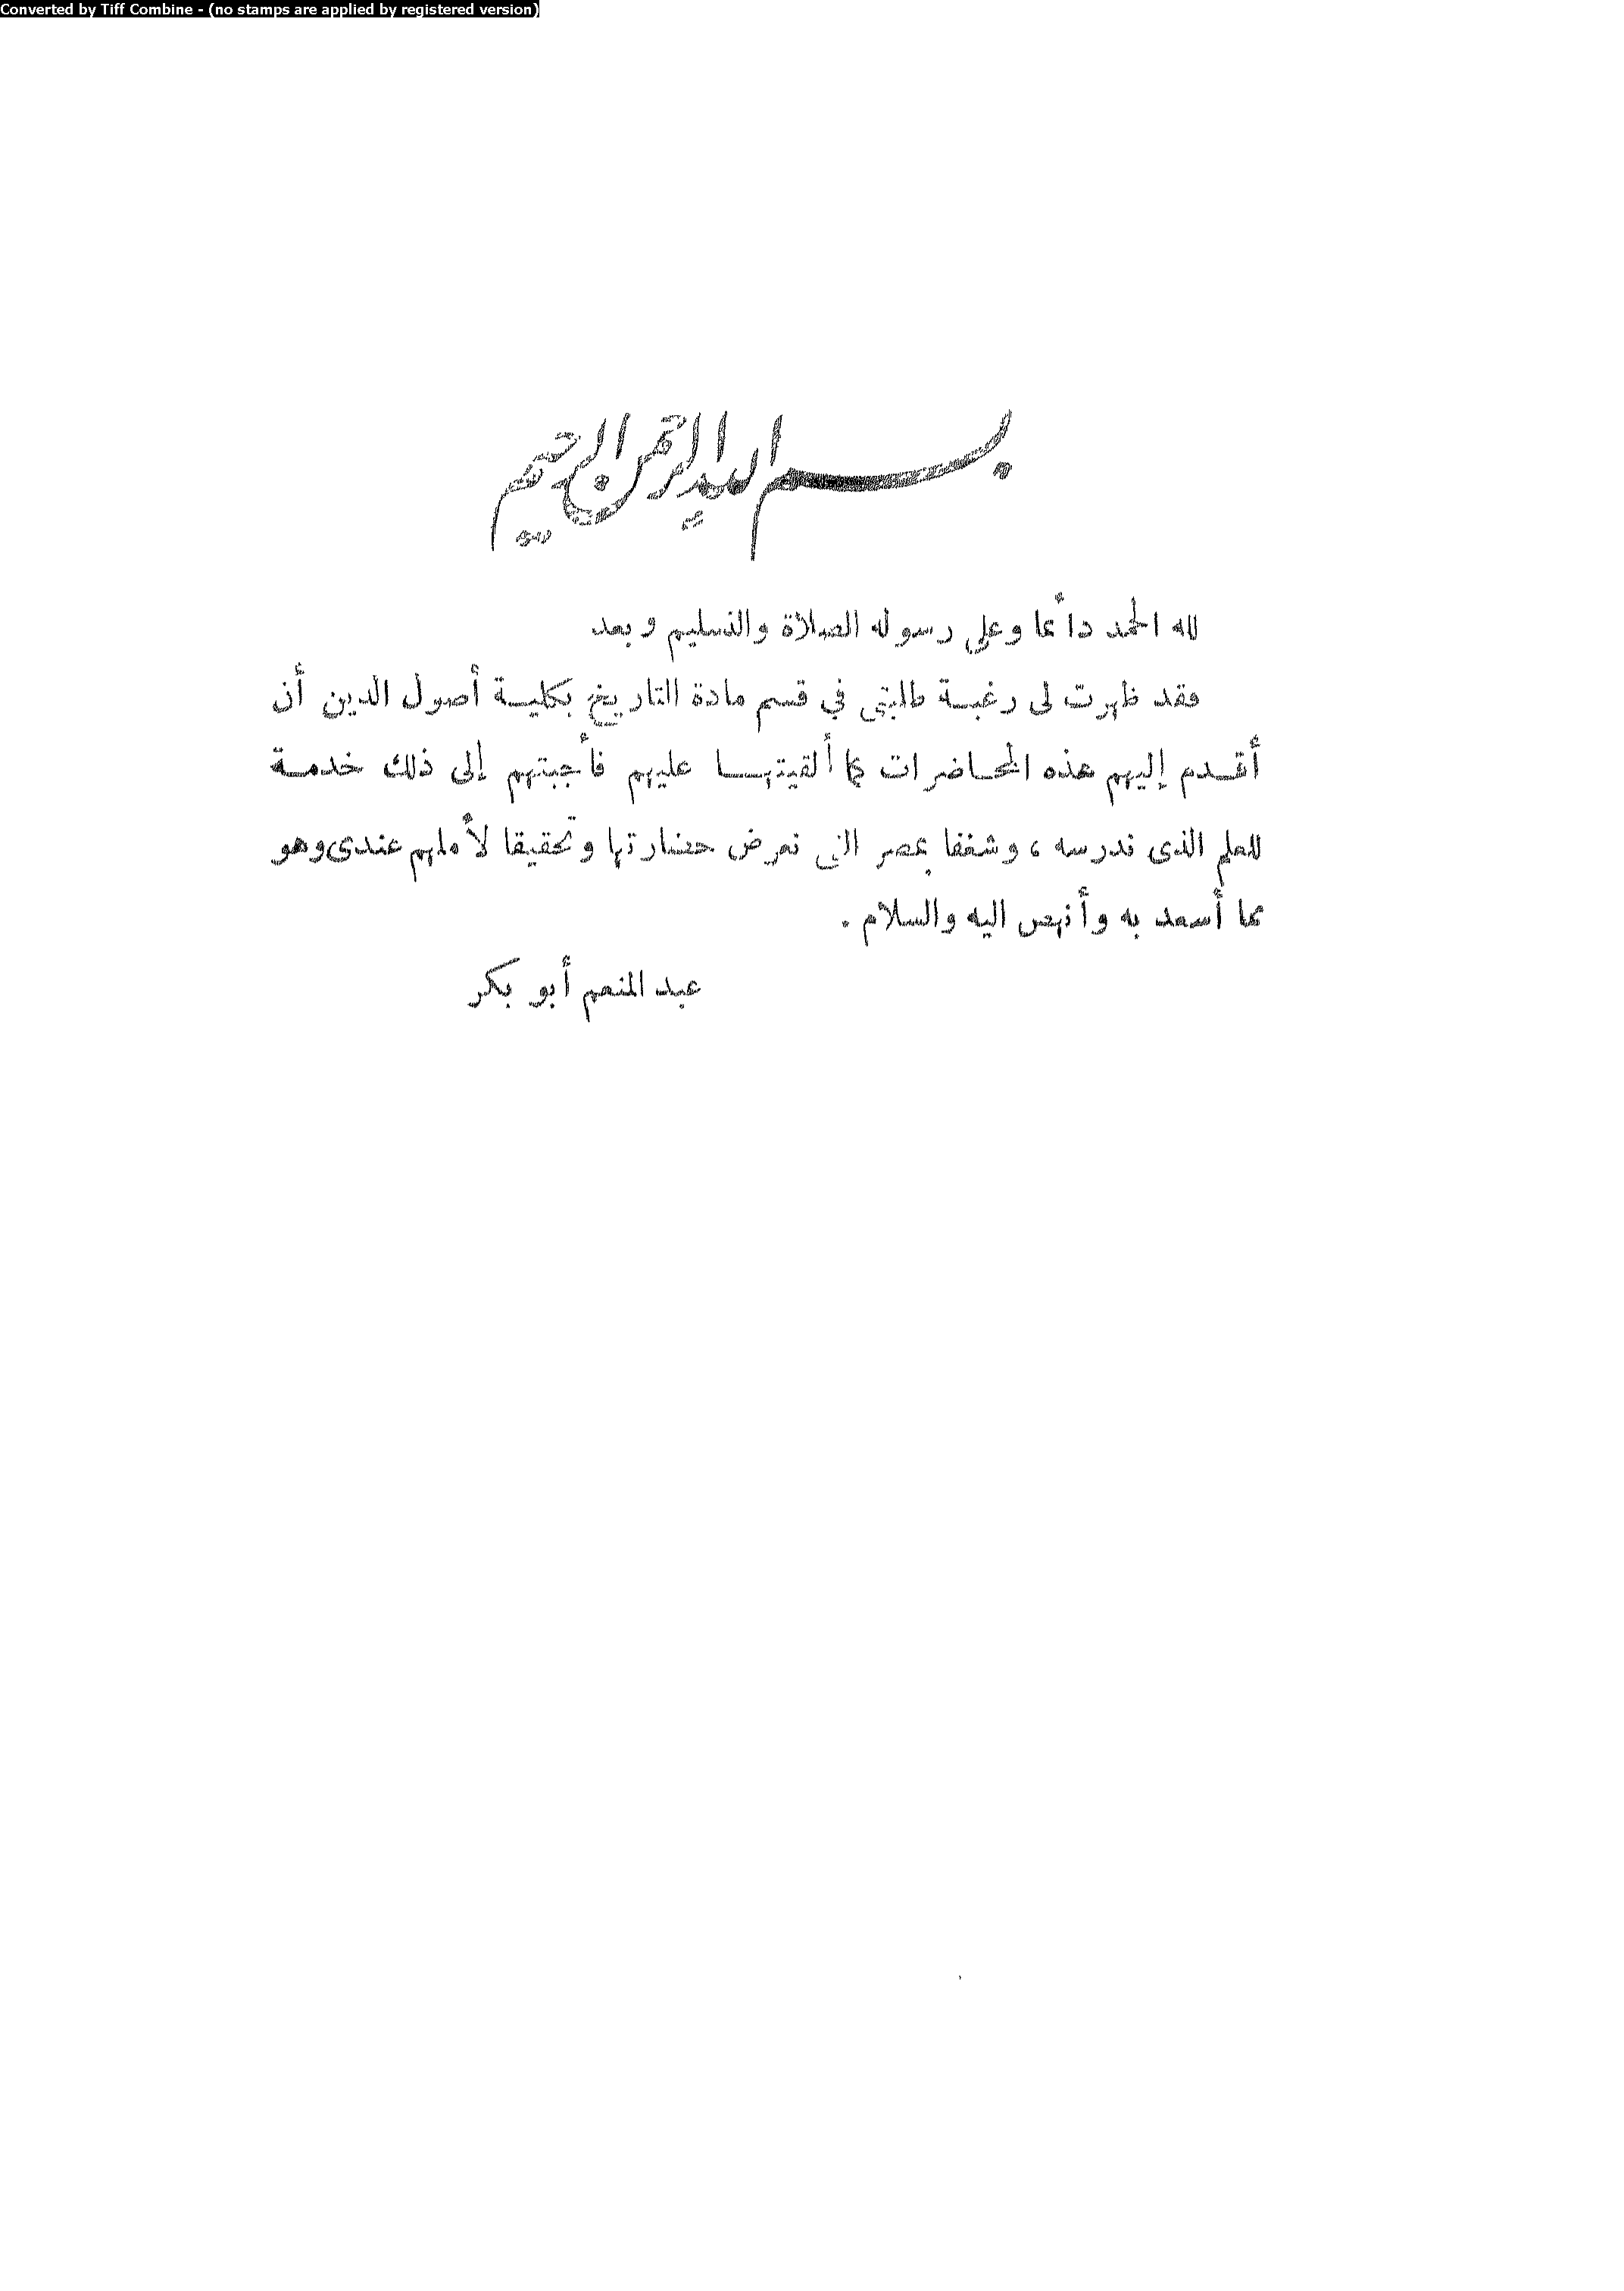 Converted by Tiff Combine - (no stamps are applied by registered version)
بسم الله الرحمن الرحيم
لله الحمد دائما وعلى رسوله الصلاة والتسليم وبعد
فقد ظهرت لى رغبة طلبتى في قسم مادة التاريخ بكلية أصول الدين أن
أقدم إليهم هذه المحاضرات كما ألقيتها عليهم فأجبتهم إلى ذلك خدمة
للعلم الذى ندرسه ، وشغفا بمصر التى نعرض حضارتها وتحقيقا لأملهم عندى وهو
مما أسعد به وأنهض اليه والسلام .
عبد المنعم أبو بكر